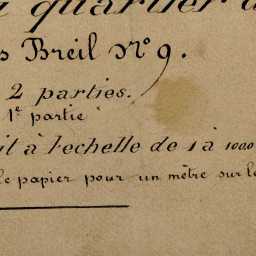 quartier
Breil N.º 9.
2 parties.
1.e partie
à l'echelle de 1 à 1000
papier pour un mètre sur le